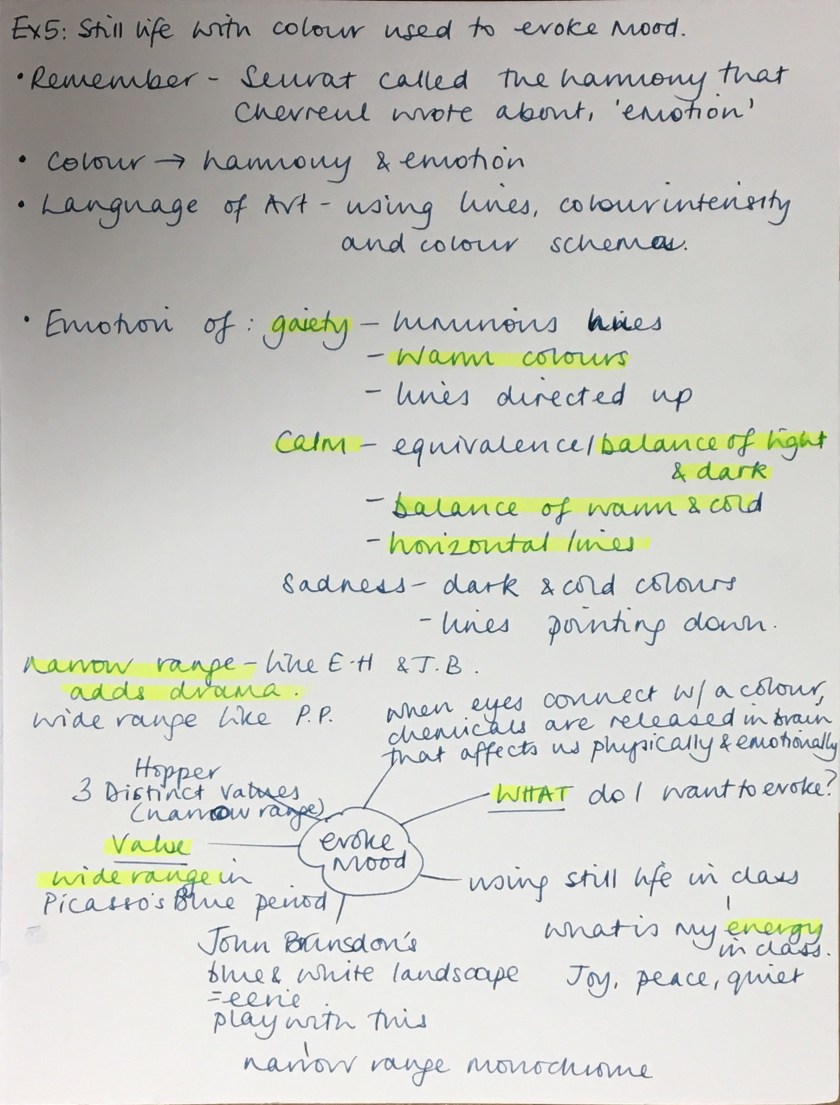 Ex5: Still life with colour used to evoke mood.
• Remember - Seurat called the harmony that
Chevreul wrote about, 'emotion'
• Colour → harmony & emotion
• Language of Art - using lines, colour intensity
and colour schemes.
• Emotion of: gaiety - luminous hues
- warm colours
- lines directed up
Calm - equivalence/balance of light
& dark
- balance of warm & cold
- horizontal lines
Sadness - dark & cold colours
- lines pointing down.
narrow range - like E.H & J.B.
adds drama.
wide range like P.P.
when eyes connect w/ a colour,
chemicals are released in brain
that affects us physically & emotionally
Hopper
3 Distinct Values
(narrow range)
WHAT do I want to evoke?
Value
evoke
mood
wide range in
Picasso's Blue period
using still life in class
what is my energy
in class.
Joy, peace, quiet
John Brunsdon's
blue & white landscape
= eerie
play with this
narrow range monochrome